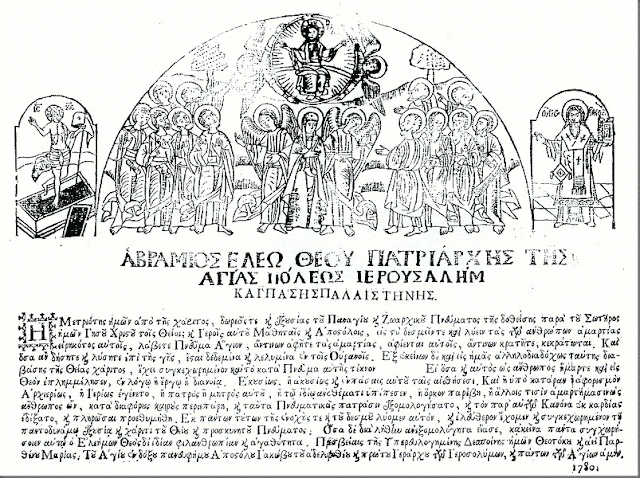 ἈΒΡΑΜΙΟΣ ΕΛΕΩ ΘΕΟΥ ΠΑΤΡΙΑΡΧΗΣ ΤΗΣ
ΑΓΙΑΣ ΠΟΛΕΩΣ ΙΕΡΟΥΣΑΛΗΜ
ΚΑΙ ΠΑΣΗΣ ΠΑΛΑΙΣΤΙΝΗΣ.
Η Μετριότης ἡμῶν ἀπὸ τῆς χάριτος, δωρεᾶς τε ϗ ἐξουσίας τοῦ Παναγίου ϗ Ζωαρχικοῦ Πνεύματος τῆς δοθείσης παρὰ τοῦ Σωτῆρος
ἡμῶν Ἰησοῦ Χριστοῦ τοῖς Θείοις ϗ Ἱεροῖς αὐτοῦ Μαθηταῖς ϗ Ἀποστόλοις, εἰς τὸ δεσμεῖν τε ϗ λύειν τὰς τῶν ἀνθρώπων ἁμαρτίας
εἰρηκότος αὐτοῖς, λάβετε Πνεῦμα Ἅγιον, ἄντινων ἀφῆτε τὰς ἁμαρτίας, ἀφίενται αὐτοῖς, ἄντινων κρατῆτε, κεκράτηνται. Καὶ
ὅσα ἂν δήσητε ϗ λύσητε ἐπὶ τῆς γῆς, ἔσται δεδεμένα ϗ λελυμένα ἐν τοῖς Οὐρανοῖς. Ἐξ ἐκείνων δὲ καὶ εἰς ἡμᾶς ἀλληλοδιαδόχως ταύτης δια-
βάσης τῆς Θείας χάριτος, ἔχει συγκεχωρημένον καὶ τὸ κατὰ Πνεῦμα αὐτῆς τέκνον Εἴ ὅσα ϗ αὐτὸς ὡς ἄνθρωπος ἥμαρτε καὶ εἰς
Θεὸν ἐπλημμέλησεν, ἐν λόγῳ ἢ ἔργῳ ἢ διανοίᾳ, Ἑκουσίως, ἢ ἀκουσίως ϗ ἐν πάσαις αὐτοῦ ταῖς αἰσθήσεσι. Καὶ ἢ ὑπὸ κατάραν ἢ ἀφορισμὸν
Ἀρχιερέως, ἢ Ἱερέως ἐγένετο, ἢ πατρὸς ἢ μητρὸς αὐτοῦ, ἢ τῷ ἰδίῳ ἀναθέματι ὑπέπεσεν, ἢ ὅρκον παρέβη, ἢ ἄλλοις τισὶν ἁμαρτήμασιν ὡς
ἄνθρωπος, κατὰ διαφόρους καιροὺς περιεπάρη, ϗ ταῦτα Πνευματικοῖς πατράσιν ἐξωμολογήσατο, ϗ τὸν παρ' αὐτῶν Κανόνα ἐκ καρδίας
ἐδέξατο, ϗ πληρῶσαι προεθυμήθη. Ἐκ πάντων τούτων τῆς ἐνοχῆς τε ϗ τοῦ δεσμοῦ λύομεν αὐτὸν, ϗ ἐλεύθερον ἔχομεν ϗ συγκεχωρημένον τῇ
παντοδυνάμῳ ἐξουσίᾳ ϗ χάριτι τοῦ Θείου ϗ προσκυνητοῦ Πνεύματος. Ὅσα δὲ διὰ λήθην ἀνεξομολόγητα εἴασε, κᾀκεῖνα πάντα συγχωρή-
σοιεν αὐτῷ ὁ Ἐλεήμων Θεὸς δι' ἰδίαν φιλανθρωπίαν ϗ ἀγαθότητα. Πρεσβείαις τῆς Ὑπερευλογημένης Δεσποίνης ἡμῶν Θεοτόκου ϗ ἀειΠαρ-
θένου Μαρίας. Τοῦ Ἁγίου ἐνδόξου πανευφήμου Ἀποστόλου Ἰακώβου τοῦ ἀδελφοθέου ϗ πρώτου Ἱεράρχου τῶν Ἱεροσολύμων, ϗ πάντων τῶν Ἁγίων ἀμήν.
1780.